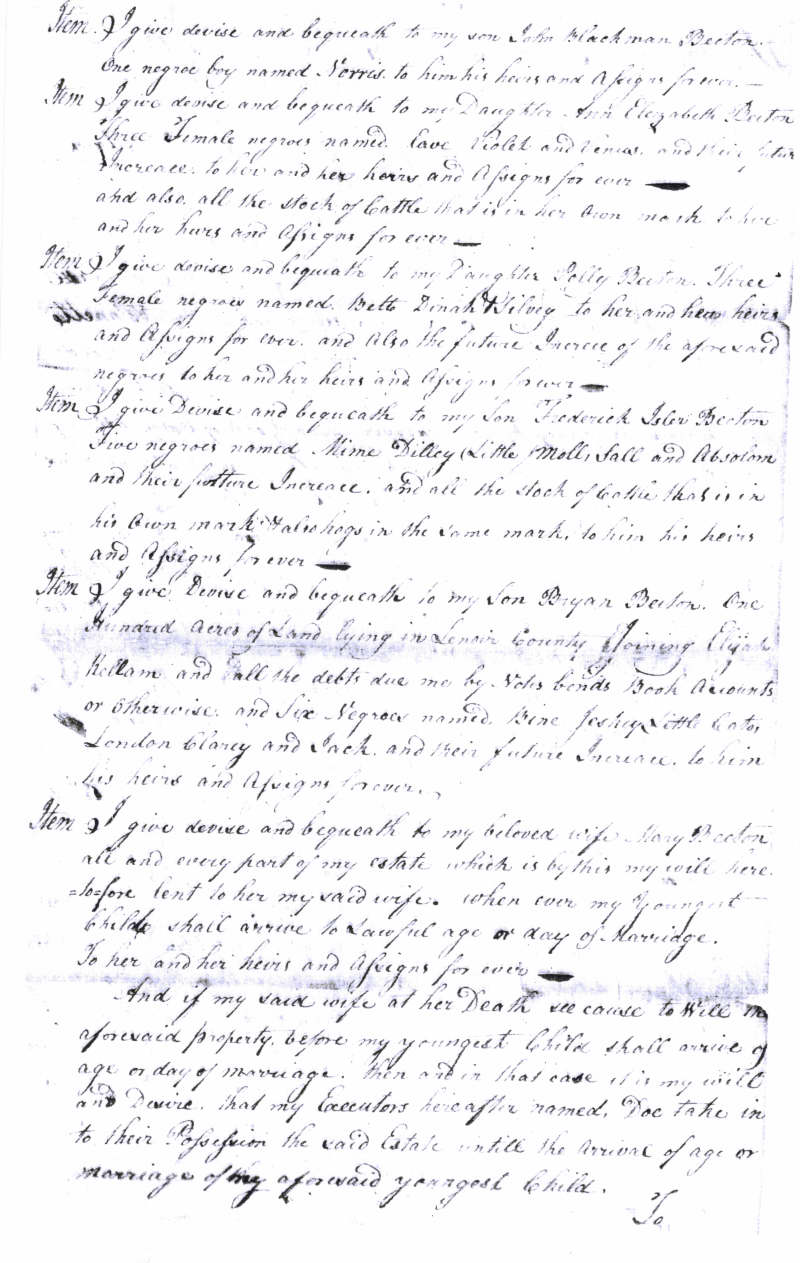 Item. I give devise and bequeath to my son John Blackman Becton.
One negroe boy named Norris. to him his heirs and Assigns for ever.
Item I give devise and bequeath to my Daughter Ann Elizabeth Becton
Three Female negroes named. Cave Violet and Venus. and their future
Increace. to her and her heirs and Assigns for ever
and also. all the stock of Cattle that is in her own mark to her
and her heirs and Assigns for ever
Item I give devise and bequeath to my Daughter Polly Becton. Three
Female negroes named. Bett Dinah & Silvey to her and her heirs
and Assigns for ever. and Also the future Increce of the aforesaid
negroes to her and her heirs and Assigns for ever
Item I give Devise and bequeath to my Son Frederick Isler Becton
Five negroes named Mime Dilley Little Moll, Sall and Absolom
and their future Increace. and all the stock of Cattle that is in
his own mark & also hogs in the same mark, to him his heirs
and Assigns for ever
Item I give Devise and bequeath to my Son Bryan Becton. One
Hundred Acres of Land lying in Lenoir County Joining Elijah
Kellam and all the debts due me by Nots bonds Book Accounts
or Otherwise. and Six Negroes named. Bine Jeskey Little Cato,
London Clarcy and Jack. and their future Increace. to him
his heirs and Assigns forever.
Item I give devise and bequeath to my beloved wife Mary Becton
all and every part of my estate which is by this my will here
=to=fore lent to her my said wife. when ever my Youngest
Child shall arrive to Lawful age or day of Marridge.
To her and her heirs and Assigns for ever
And if my said wife at her Death see cause to Will
aforesaid property. before my youngest Child shall arrive of
age or day of marriage. then and in that case it is my will
and Desire. that my Executors hereafter named, Doe take in
to their Possession the said Estate untill the arrival of age or
marriage of my aforesaid youngest Child.
To